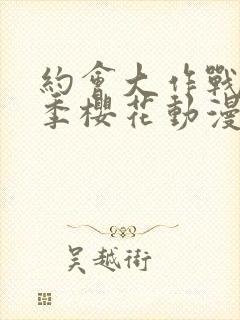 約會大作戰
季櫻花動漫
吴越術